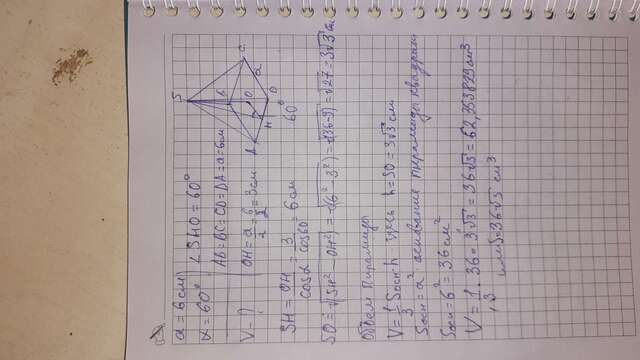 a = 6 см
α = 60°
V - ?
∠SHO = 60°
AB = BC = CD = DA = a = 6 см
OH = a/2 = 6/2 = 3 см
S
B
C
A
O
H
D
a
SH = OH/cosα = 3/cos60° = 6 см
60°
SO = √(SH² - OH²) = √(6² - 3²) = √(36-9) = √27 = 3√3 см
Объем пирамиды
V = 1/3 Sосн·h здесь h = SO = 3√3 см
Sосн = a² основание пирамиды квадрат
Sосн = 6² = 36 см²
V = 1/3 · 36 · 3√3 = 36√3 = 62,353829 см³
или S = 36√3 см³